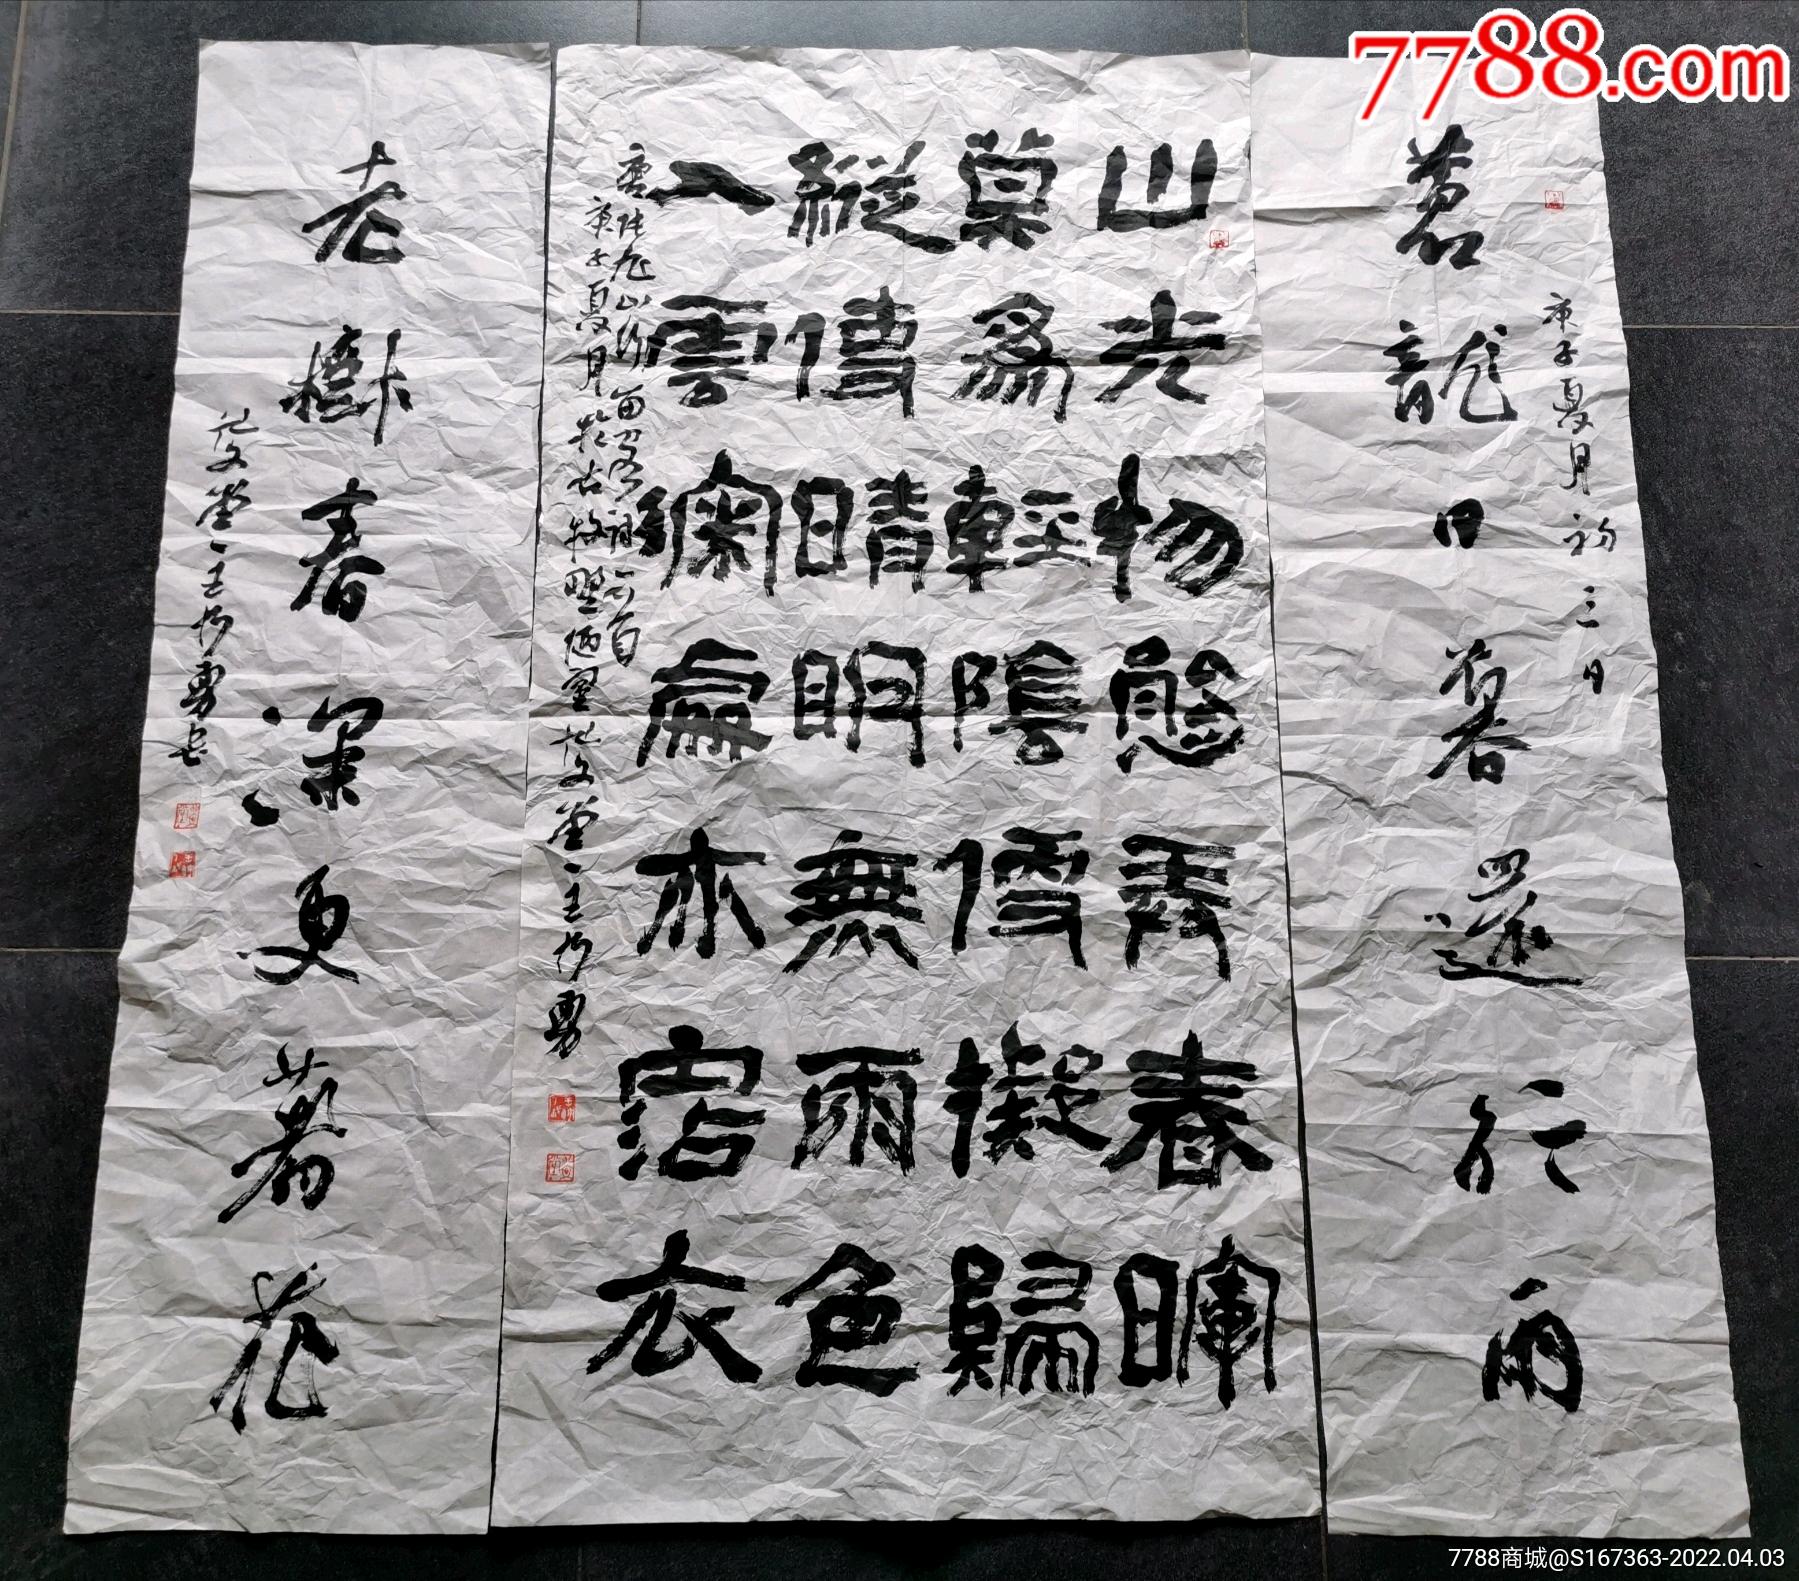 7788.com
蒼龍日暮還行雨
庚子夏月初三日
山光物態弄春暉
莫爲輕陰便擬歸
縱使晴明無雨色
入雲深處亦沾衣
唐張旭山行留客詩一首
庚子夏月於古牧野
老樹春深更著花
7788商城@S167363-2022.04.03